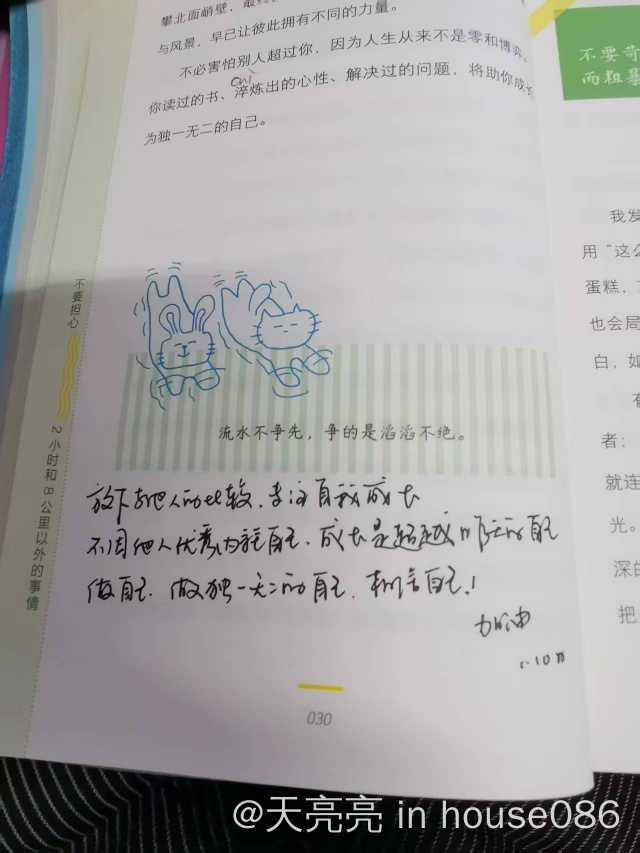 攀北面峭壁，最终
与风景，早已让彼此拥有不同的力量。
不必害怕别人超过你，因为人生从来不是零和博弈、
cuì
你读过的书、淬炼出的心性、解决过的问题，将助你成长
为独一无二的自己。
不要担心
2小时和8公里以外的事情
流水不争先，争的是滔滔不绝。
放下与他人的比较，专注自我成长
不因他人优秀内耗自己，成长是超越昨天的自己
做自己，做独一无二的自己，相信自己！
加油
030
不要苛
而粗暴
我发
用“这么
蛋糕，
也会局
白，如
者：
就连
光。
深的
把
@天亮亮 in house086